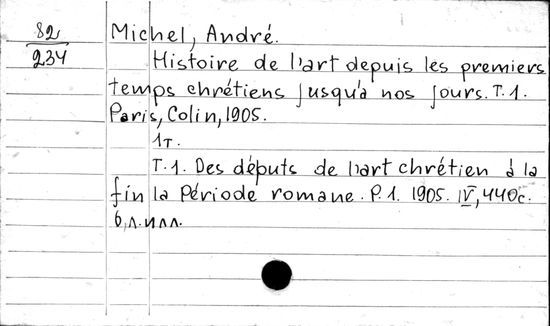 82
234
Michel, André.
Histoire de l'art depuis les premiers
temps chrétiens jusqu'à nos jours. T. 1.
Paris, Colin, 1905.
1т.
T. 1. Des députs de l'art chrétien à la
fin la période romane. P. 1. 1905. IV, 440с.
6 л. илл.